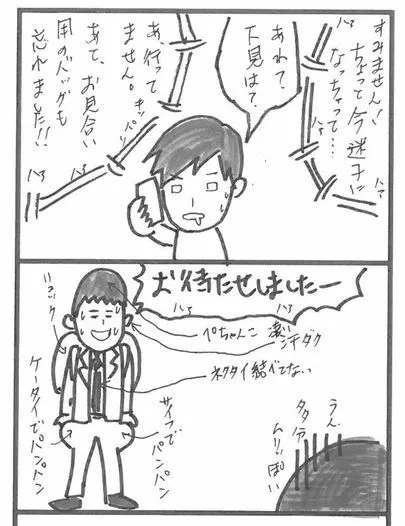 すみません！
ちょっと今迷子に
なっちゃって…
ハァ
ハァ
ハァ
あれ？
下見は？
あ、行って
ません。
キッパリ
あと、お見合い
用のバッグも
忘れました!!
ハァ
ハァ
ハァ
お待たせしましたー
ハァ
ハァ
ぺちゃんこ
凄い
汗ダク
ネクタイ結べてない
リュック
ケータイで
パンパン
サイフで
パンパン
うん、
多分
ムリっぽい